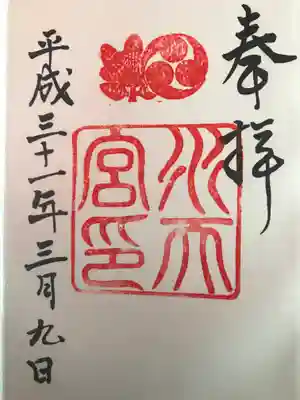 奉拝
水天
宮印
平成三十一年三月九日